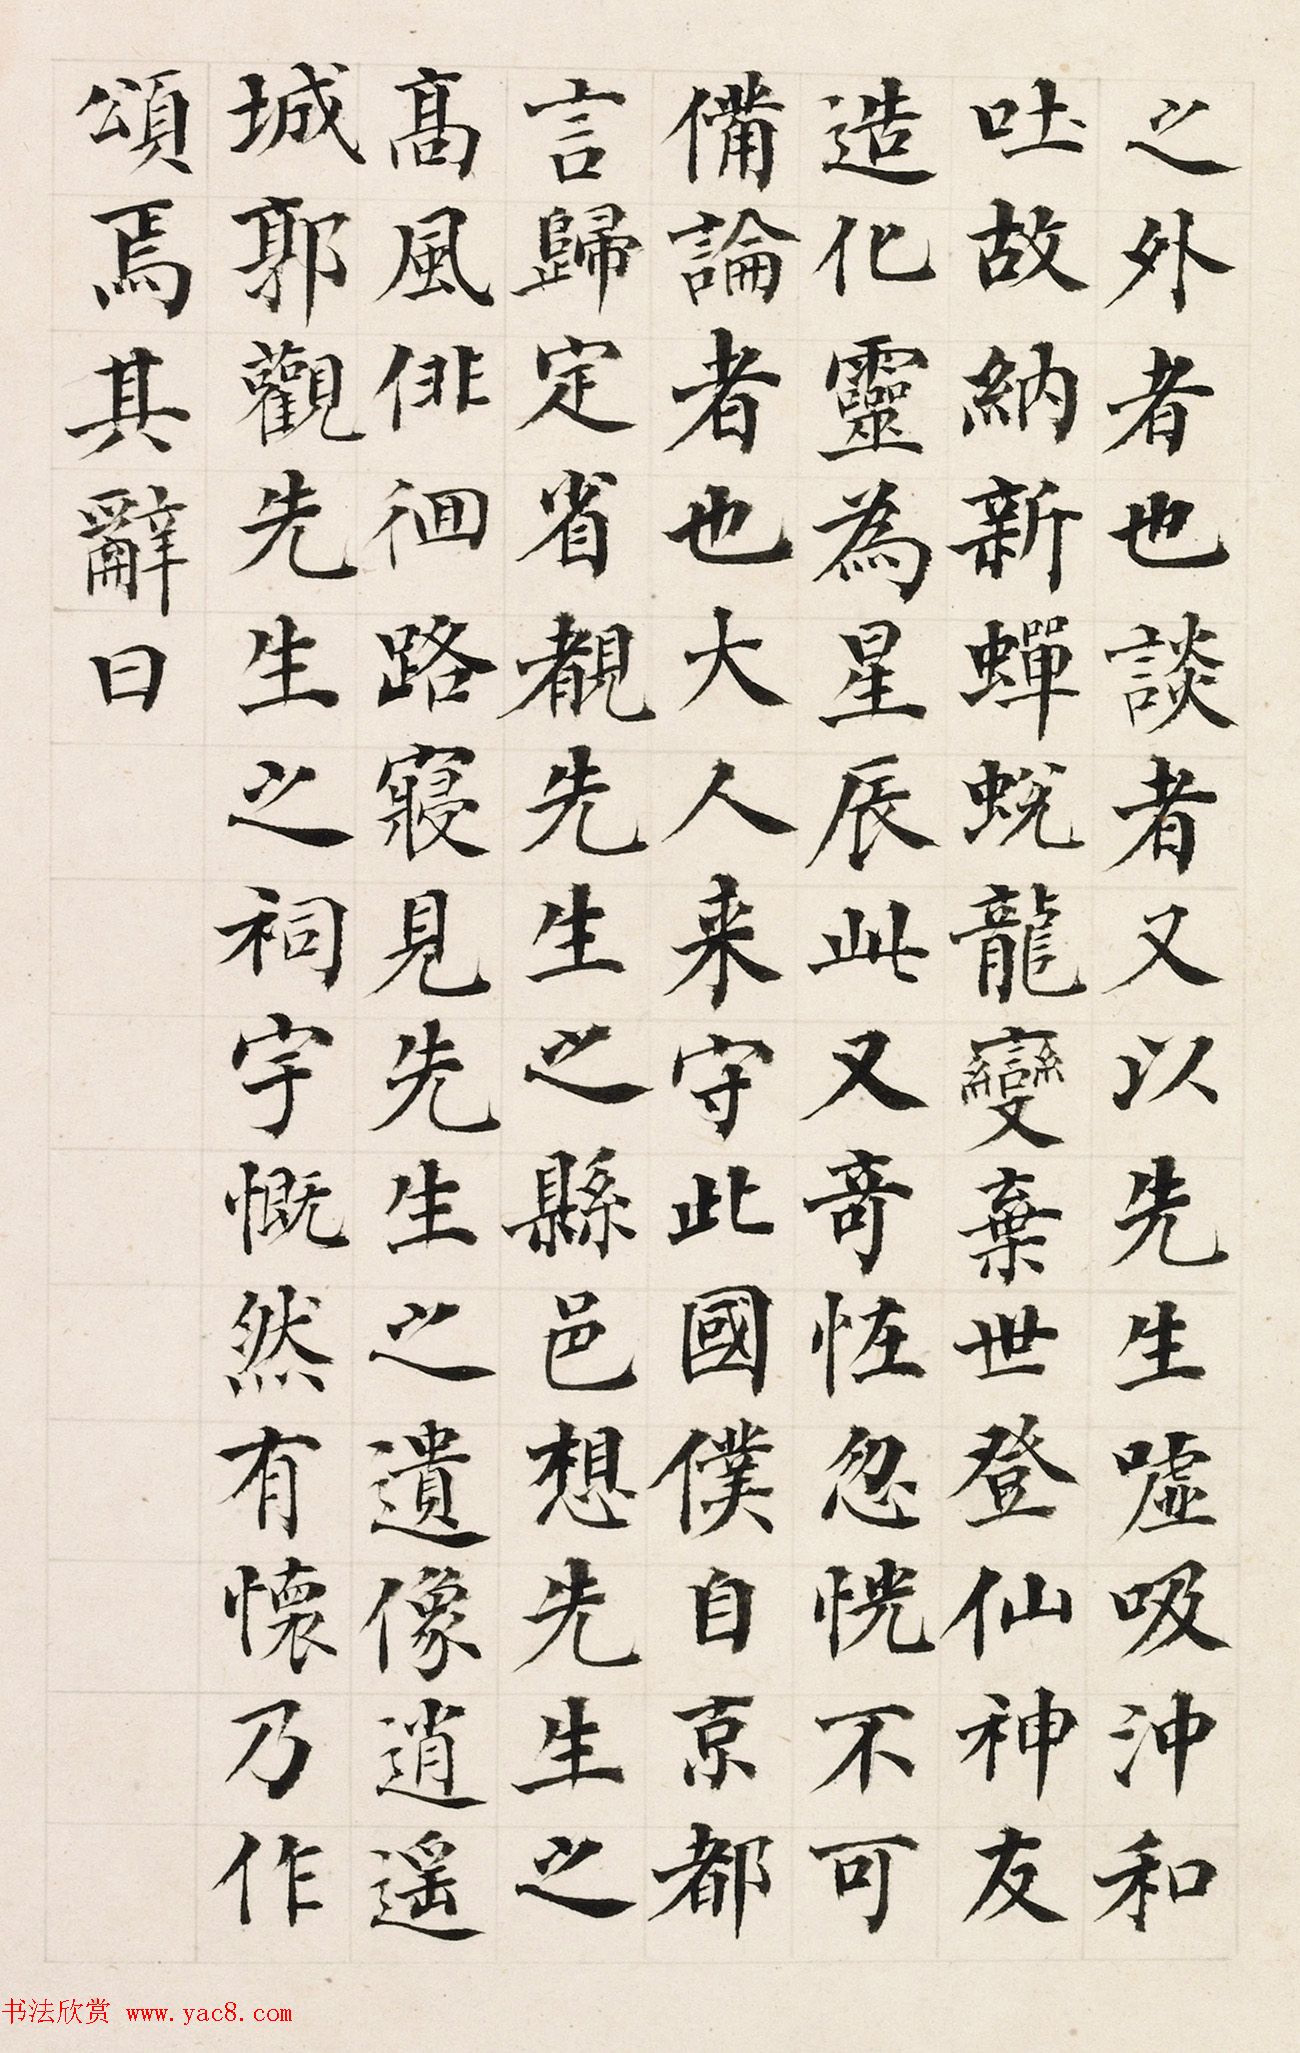 之外者也談者又以先生噓吸沖和
吐故納新蟬蛻龍變棄世登仙神友
造化靈為星辰此又奇恠忽恍不可
備論者也大人来守此國僕自京都
言歸定省覩先生之縣邑想先生之
髙風俳徊路寢見先生之遺像逍遥
城郭觀先生之祠宇慨然有懷乃作
頌焉其辭曰
书法欣赏 www.yac8.com